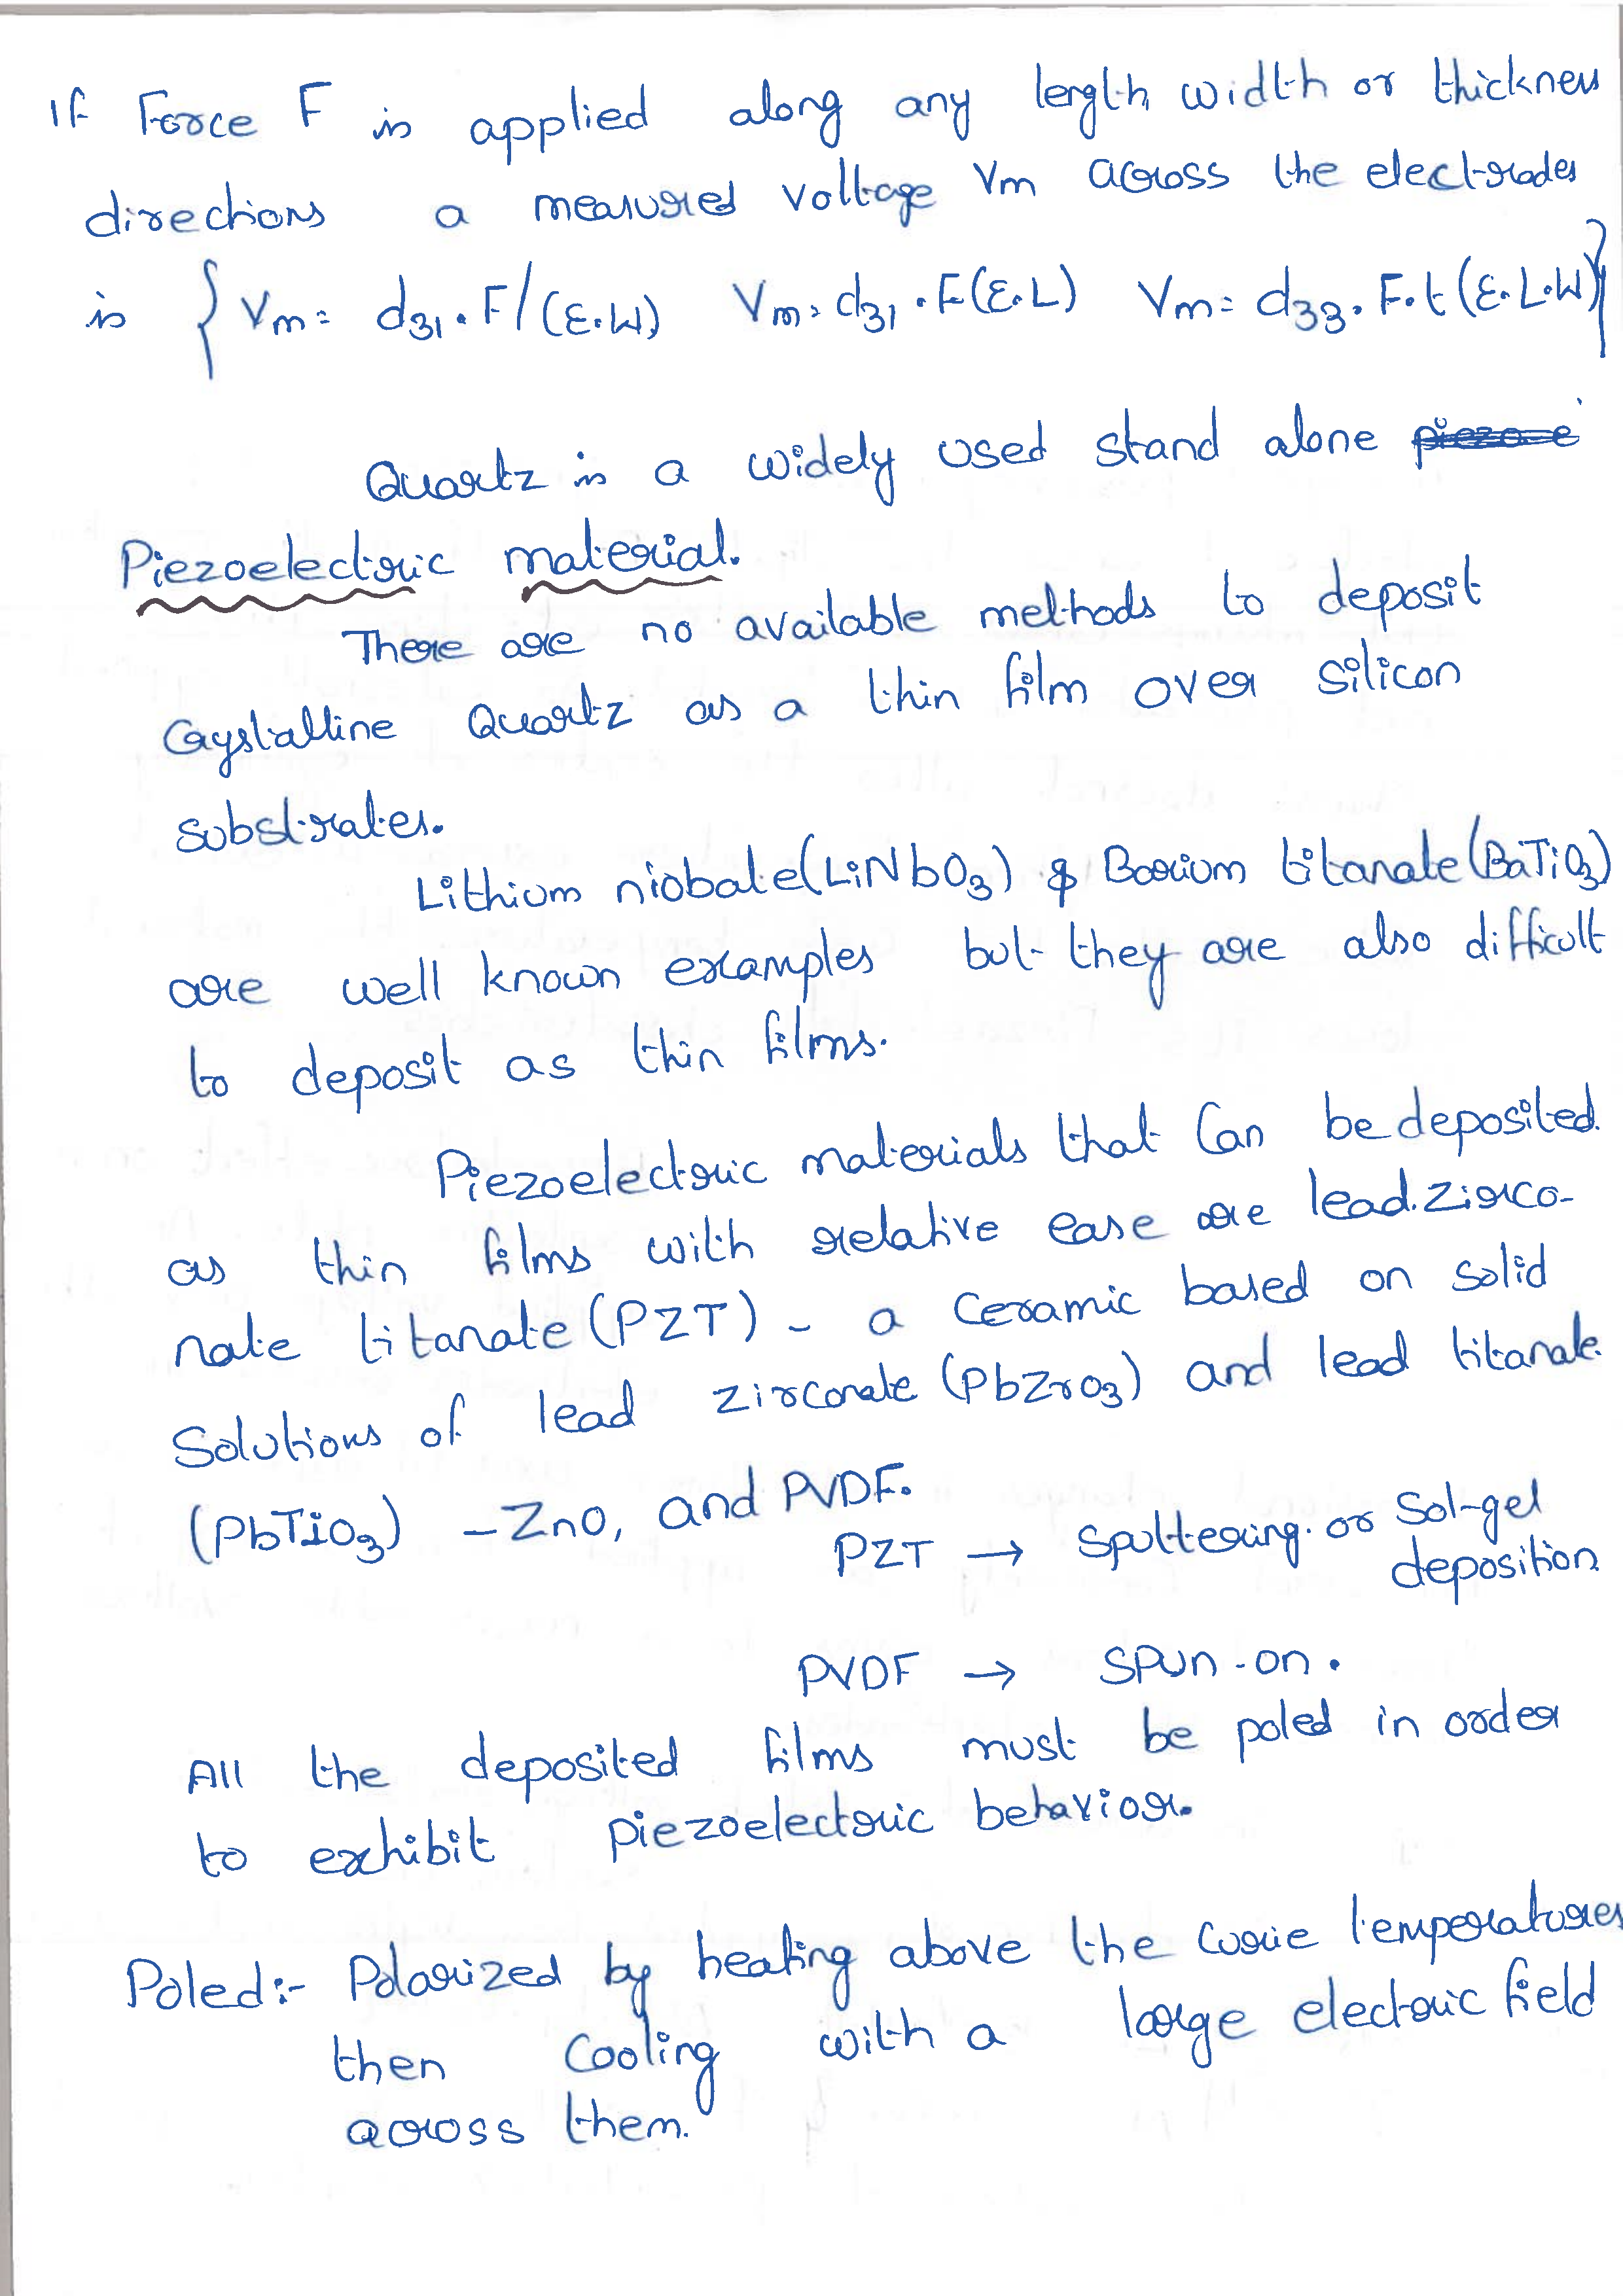 If Force F is applied along any length width or thickness
directions a measured voltage Vm across the electrodes
is { Vm = d31 . F/(ε.W) Vm = d31 . F(ε.L) Vm = d33 . F.t(ε.L.W) }
Quartz is a widely used stand alone
Piezoelectric material.
There are no available methods to deposit
Crystalline Quartz as a thin film over silicon
substrates.
Lithium niobate(LiNbO3) & Barium titanate(BaTiO3)
are well known examples but they are also difficult
to deposit as thin films.
Piezoelectric materials that Can be deposited.
as thin films with relative ease are lead.zirco-
nate titanate(PZT) - a Ceramic based on solid
Solutions of lead zirconate (PbZrO3) and lead titanate.
(PbTiO3) - ZnO, and PVDF.
PZT → Sputtering. or Sol-gel
deposition
PVDF → SPUN-on.
All the deposited films must be poled in order
to exhibit piezoelectric behavior.
Poled:- Polarized by heating above the Curie temperatures
then Cooling with a large electric field
across them.